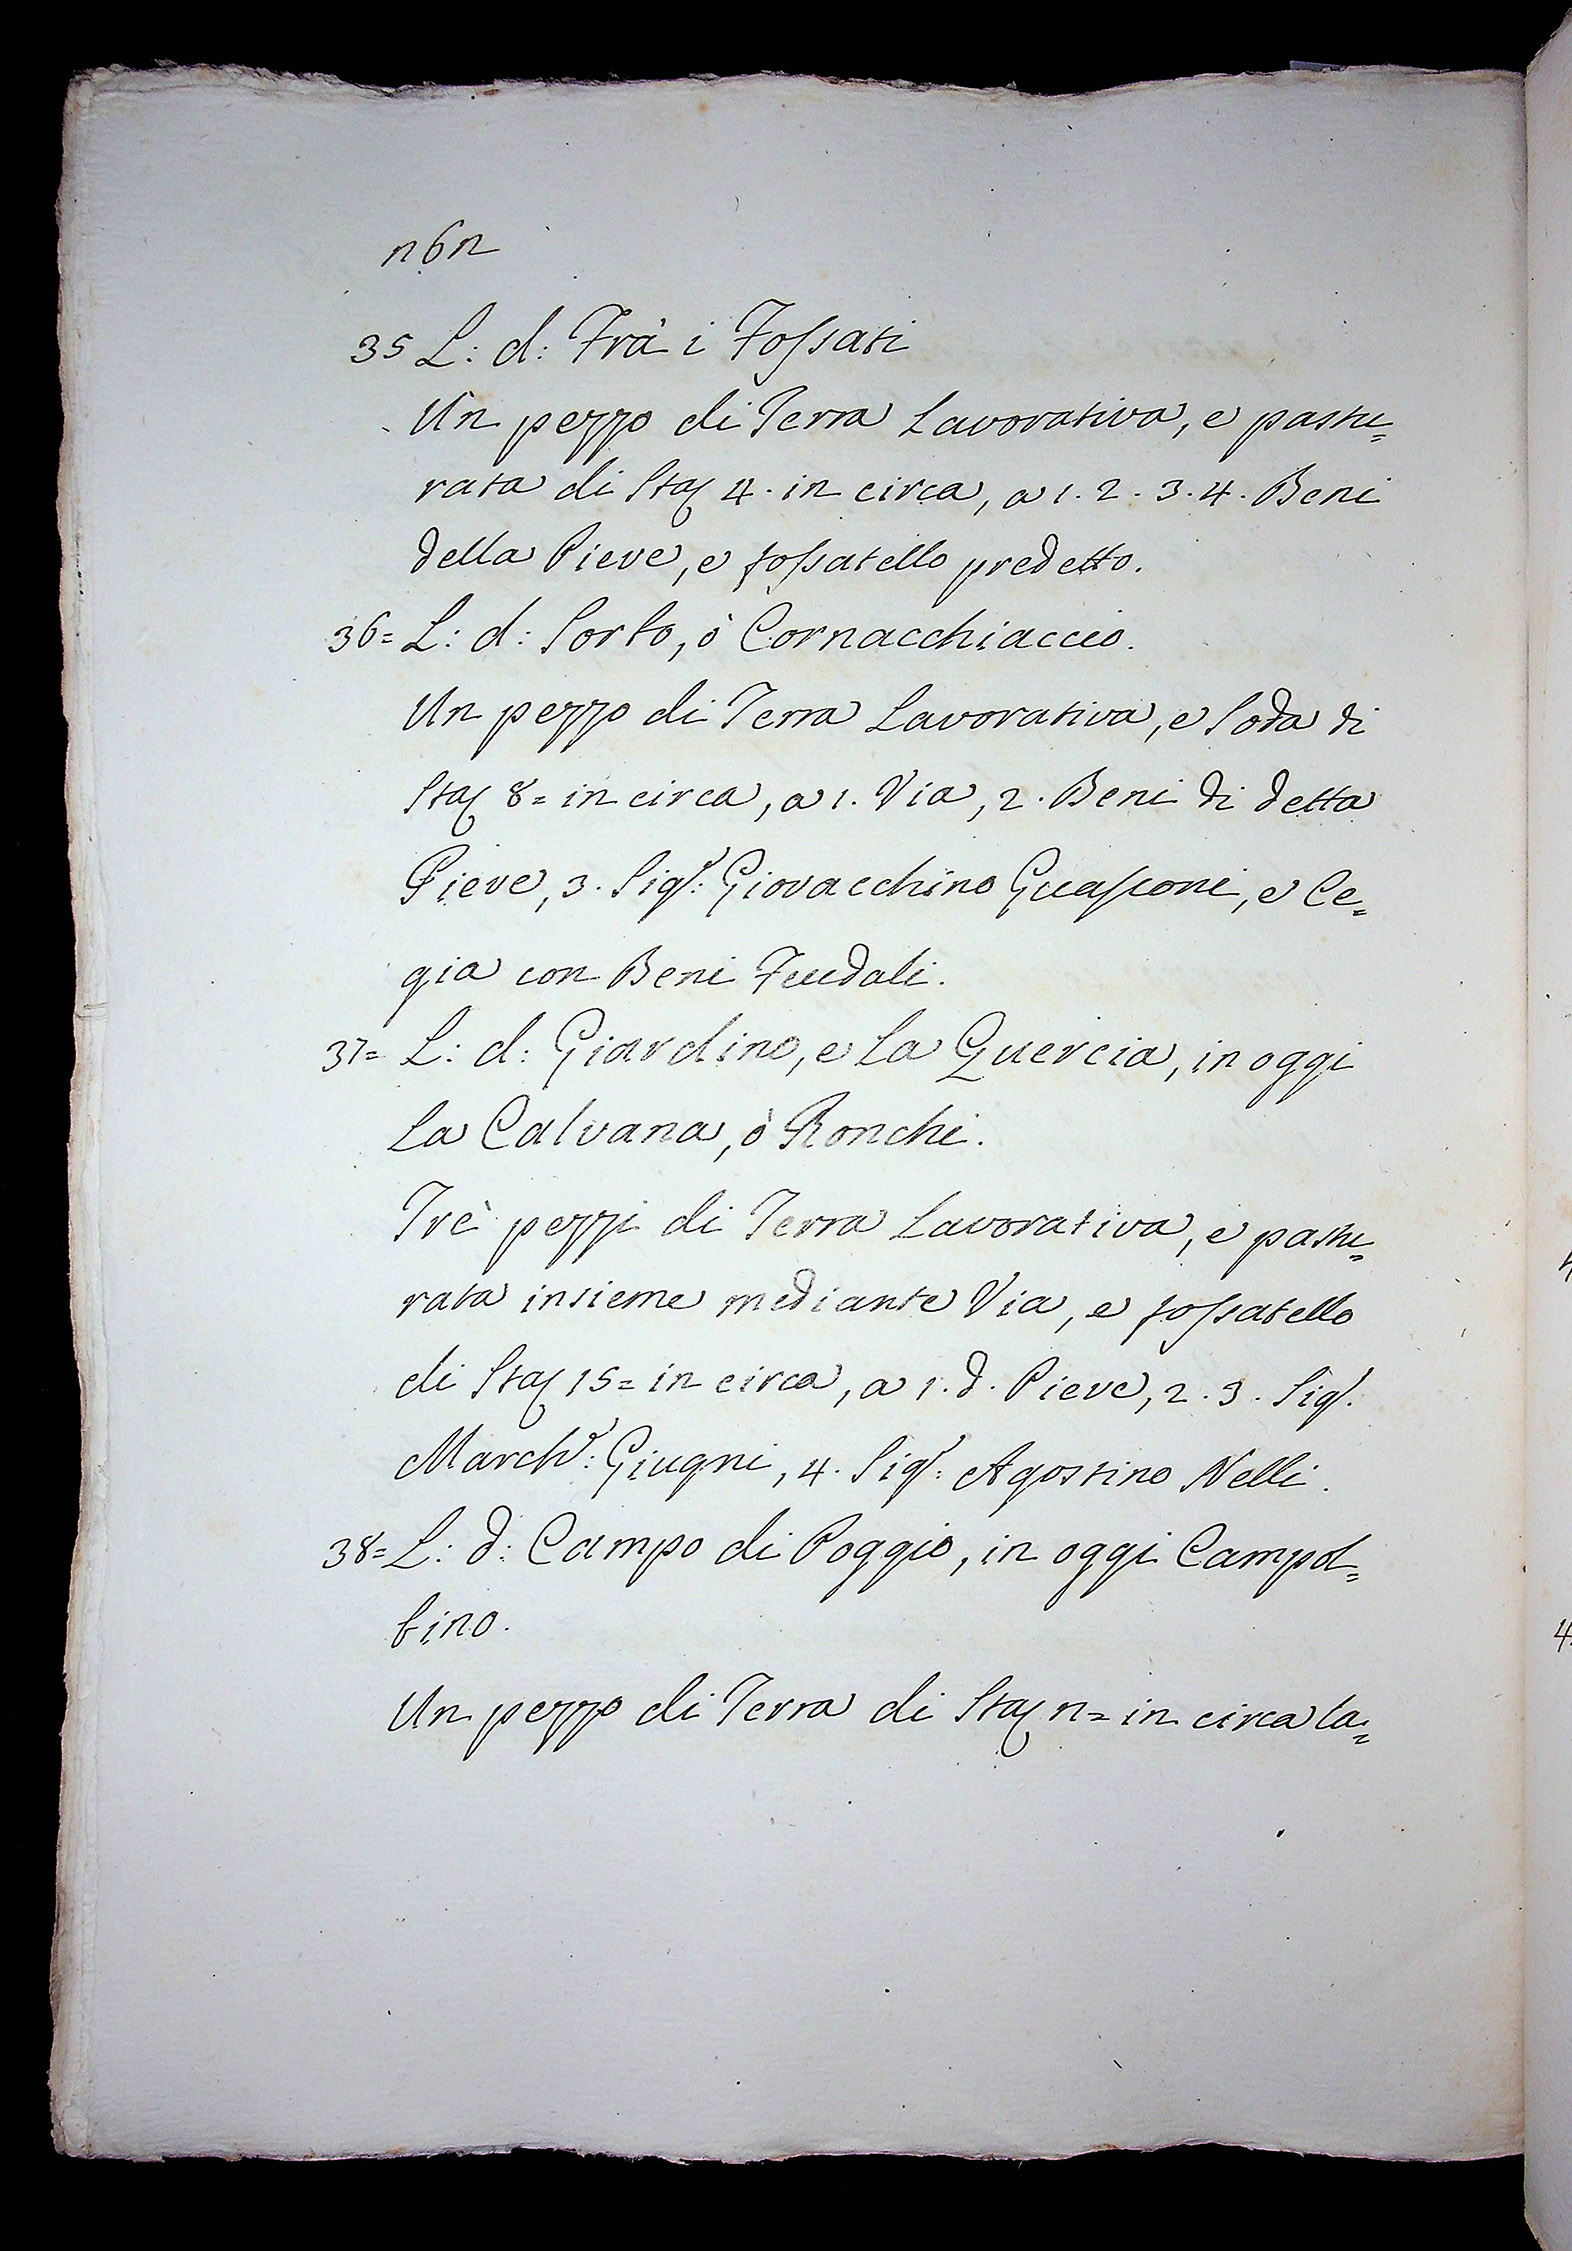 n6n
35 L: d: Frà i Fossati
Un pezzo di Terra Lavorativa, e pastu=
rata di Staj 4. in circa, a 1. 2. 3. 4. Beni
della Pieve, e fossatello predetto.
36= L: d: Sorbo, ò Cornacchiaccio.
Un pezzo di Terra Lavorativa, e Soda di
Staj 8= in circa, a 1. Via, 2. Beni di detta
Pieve, 3. Sig.r: Giovacchino Guasconi, e Ce=
gia con Beni Feudali.
37= L: d: Giardino, e la Quercia, in oggi
la Calvana, ò Ronchi.
Trè pezzi di Terra Lavorativa, e pastu=
rata insieme mediante Via, e fossatello
di Staj 15= in circa, a 1. d. Pieve, 2. 3. Sig.r
March.e: Giugni, 4. Sig.r: Agostino Nelli.
38= L: d: Campo di Poggio, in oggi Campol=
bino.
Un pezzo di Terra di Staj n= in circa la=
4